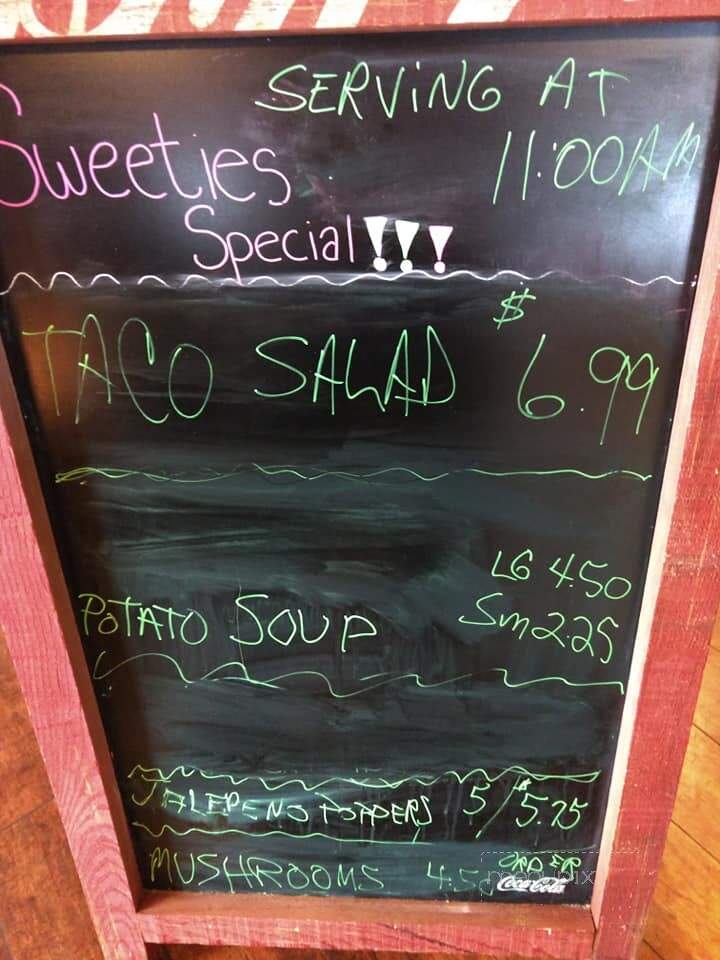 SERVING AT
11:00AM
Sweeties
Special!!!
TACO SALAD $6.99
LG 4.50
POTATO SOUP Sm 2.25
JALEPENO POPPERS 5/$5.25
MUSHROOMS 4.50 ORDER
Coca-Cola
menupix